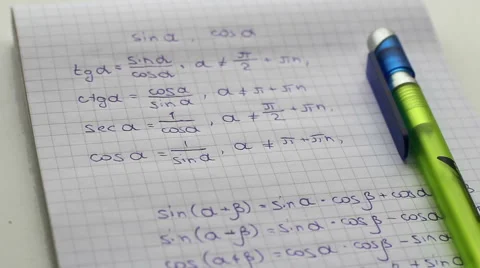 sin α, cos α
tg α = sin α / cos α, α ≠ π/2 + πn,
ctg α = cos α / sin α, α ≠ π + πn
sec α = 1 / cos α, α ≠ π/2 + πn.
cos α = 1 / sin α, α ≠ π + πn,
sin(α + β) = sin α · cos β + cos α
sin(α + β) = sin α · cos β - cos α
cos(α + β) = cos α · cos β - sin α
+ sin α